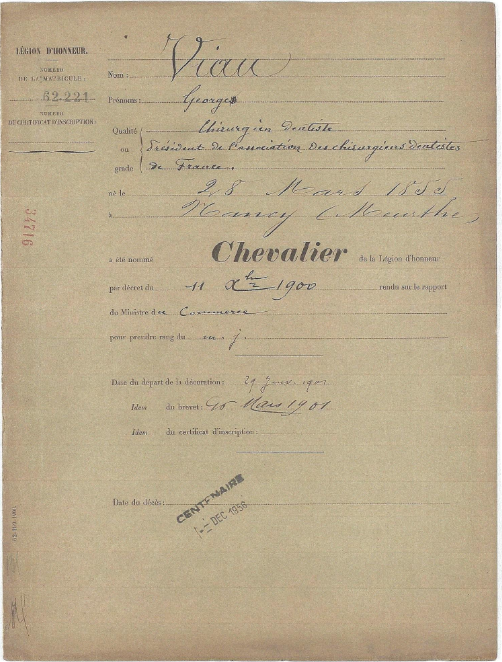 LÉGION D'HONNEUR.
NUMÉRO
DE LA MATRICULE:
62.221
NUMÉRO
DU CERTIFICAT D'INSCRIPTION:
Nom: Viau
Prénoms: Georges
Qualité Chirurgien Dentiste
ou Président de l'association des chirurgiens dentistes
grade de France.
né le 28 Mars 1855
à Nancy (Meurthe)
34716
a été nommé Chevalier de la Légion d'honneur
par décret du 11 Xbre 1900 rendu sur le rapport
du Ministre du Commerce
pour prendre rang du m. j.
Date du départ de la décoration: 29 Janv. 1901
Idem du brevet: 15 Mars 1901
Idem du certificat d'inscription:
Date du décès:
CENTENAIRE
DEC 1956